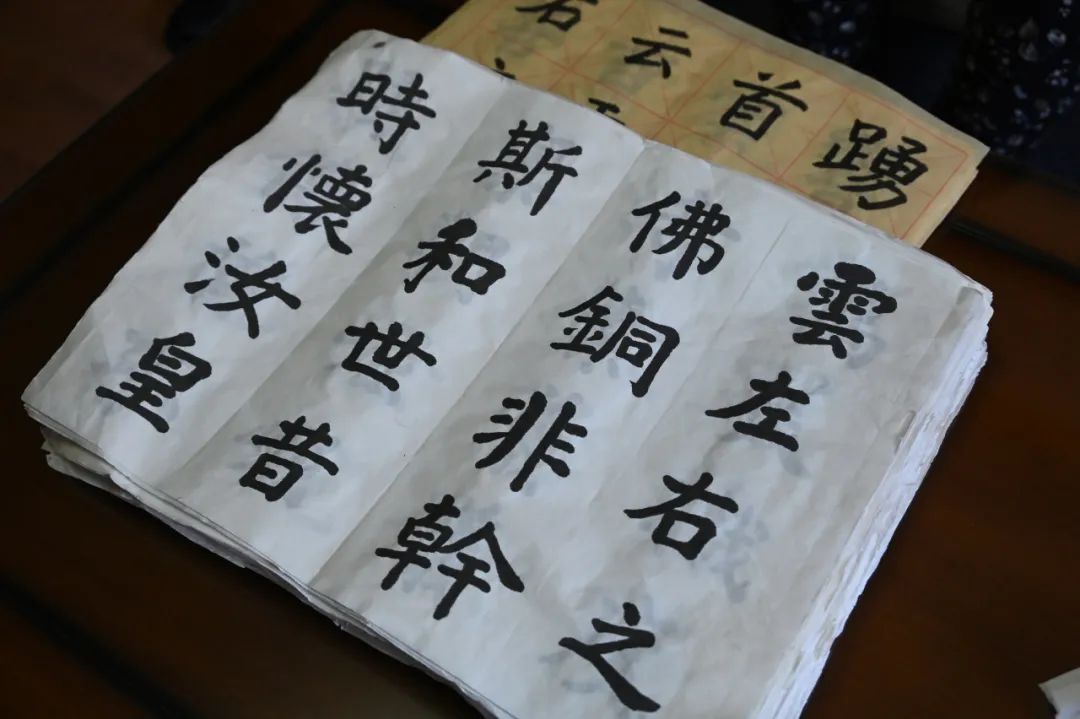 雲左右之
佛銅非幹
斯和世昔
時懷汝皇
踴
首
云